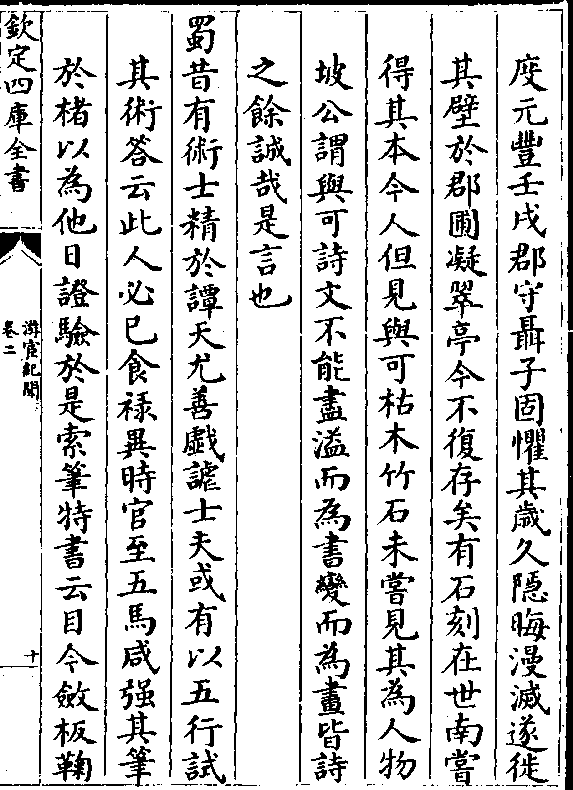 度元豐壬戌郡守聶子固懼其歲久隱晦漫滅遂徙
其壁於郡圃凝翠亭今不復存矣有石刻在世南嘗
得其本今人但見與可枯木竹石未嘗見其為人物
坡公謂與可詩文不能盡溢而為書變而為畫皆詩
之餘誠哉是言也
蜀昔有術士精於譚天尤善戲謔士夫或有以五行試
其術答云此人必已食祿異時官至五馬咸强其筆
於楮以為他日證驗於是索筆特書云目今斂板鞠
欽定四庫全書
游宦紀聞
卷二
十